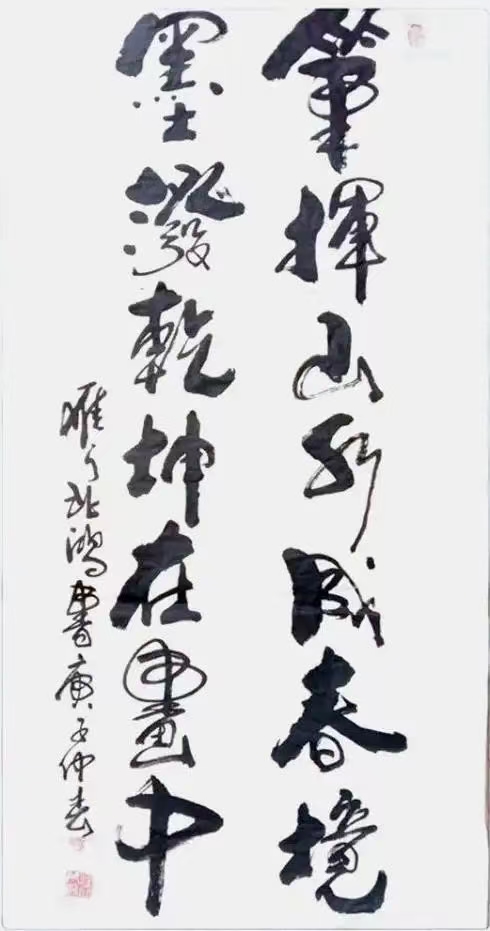 筆揮山成春境
墨潑乾坤在畫中
雁门北鴻書庚子仲春